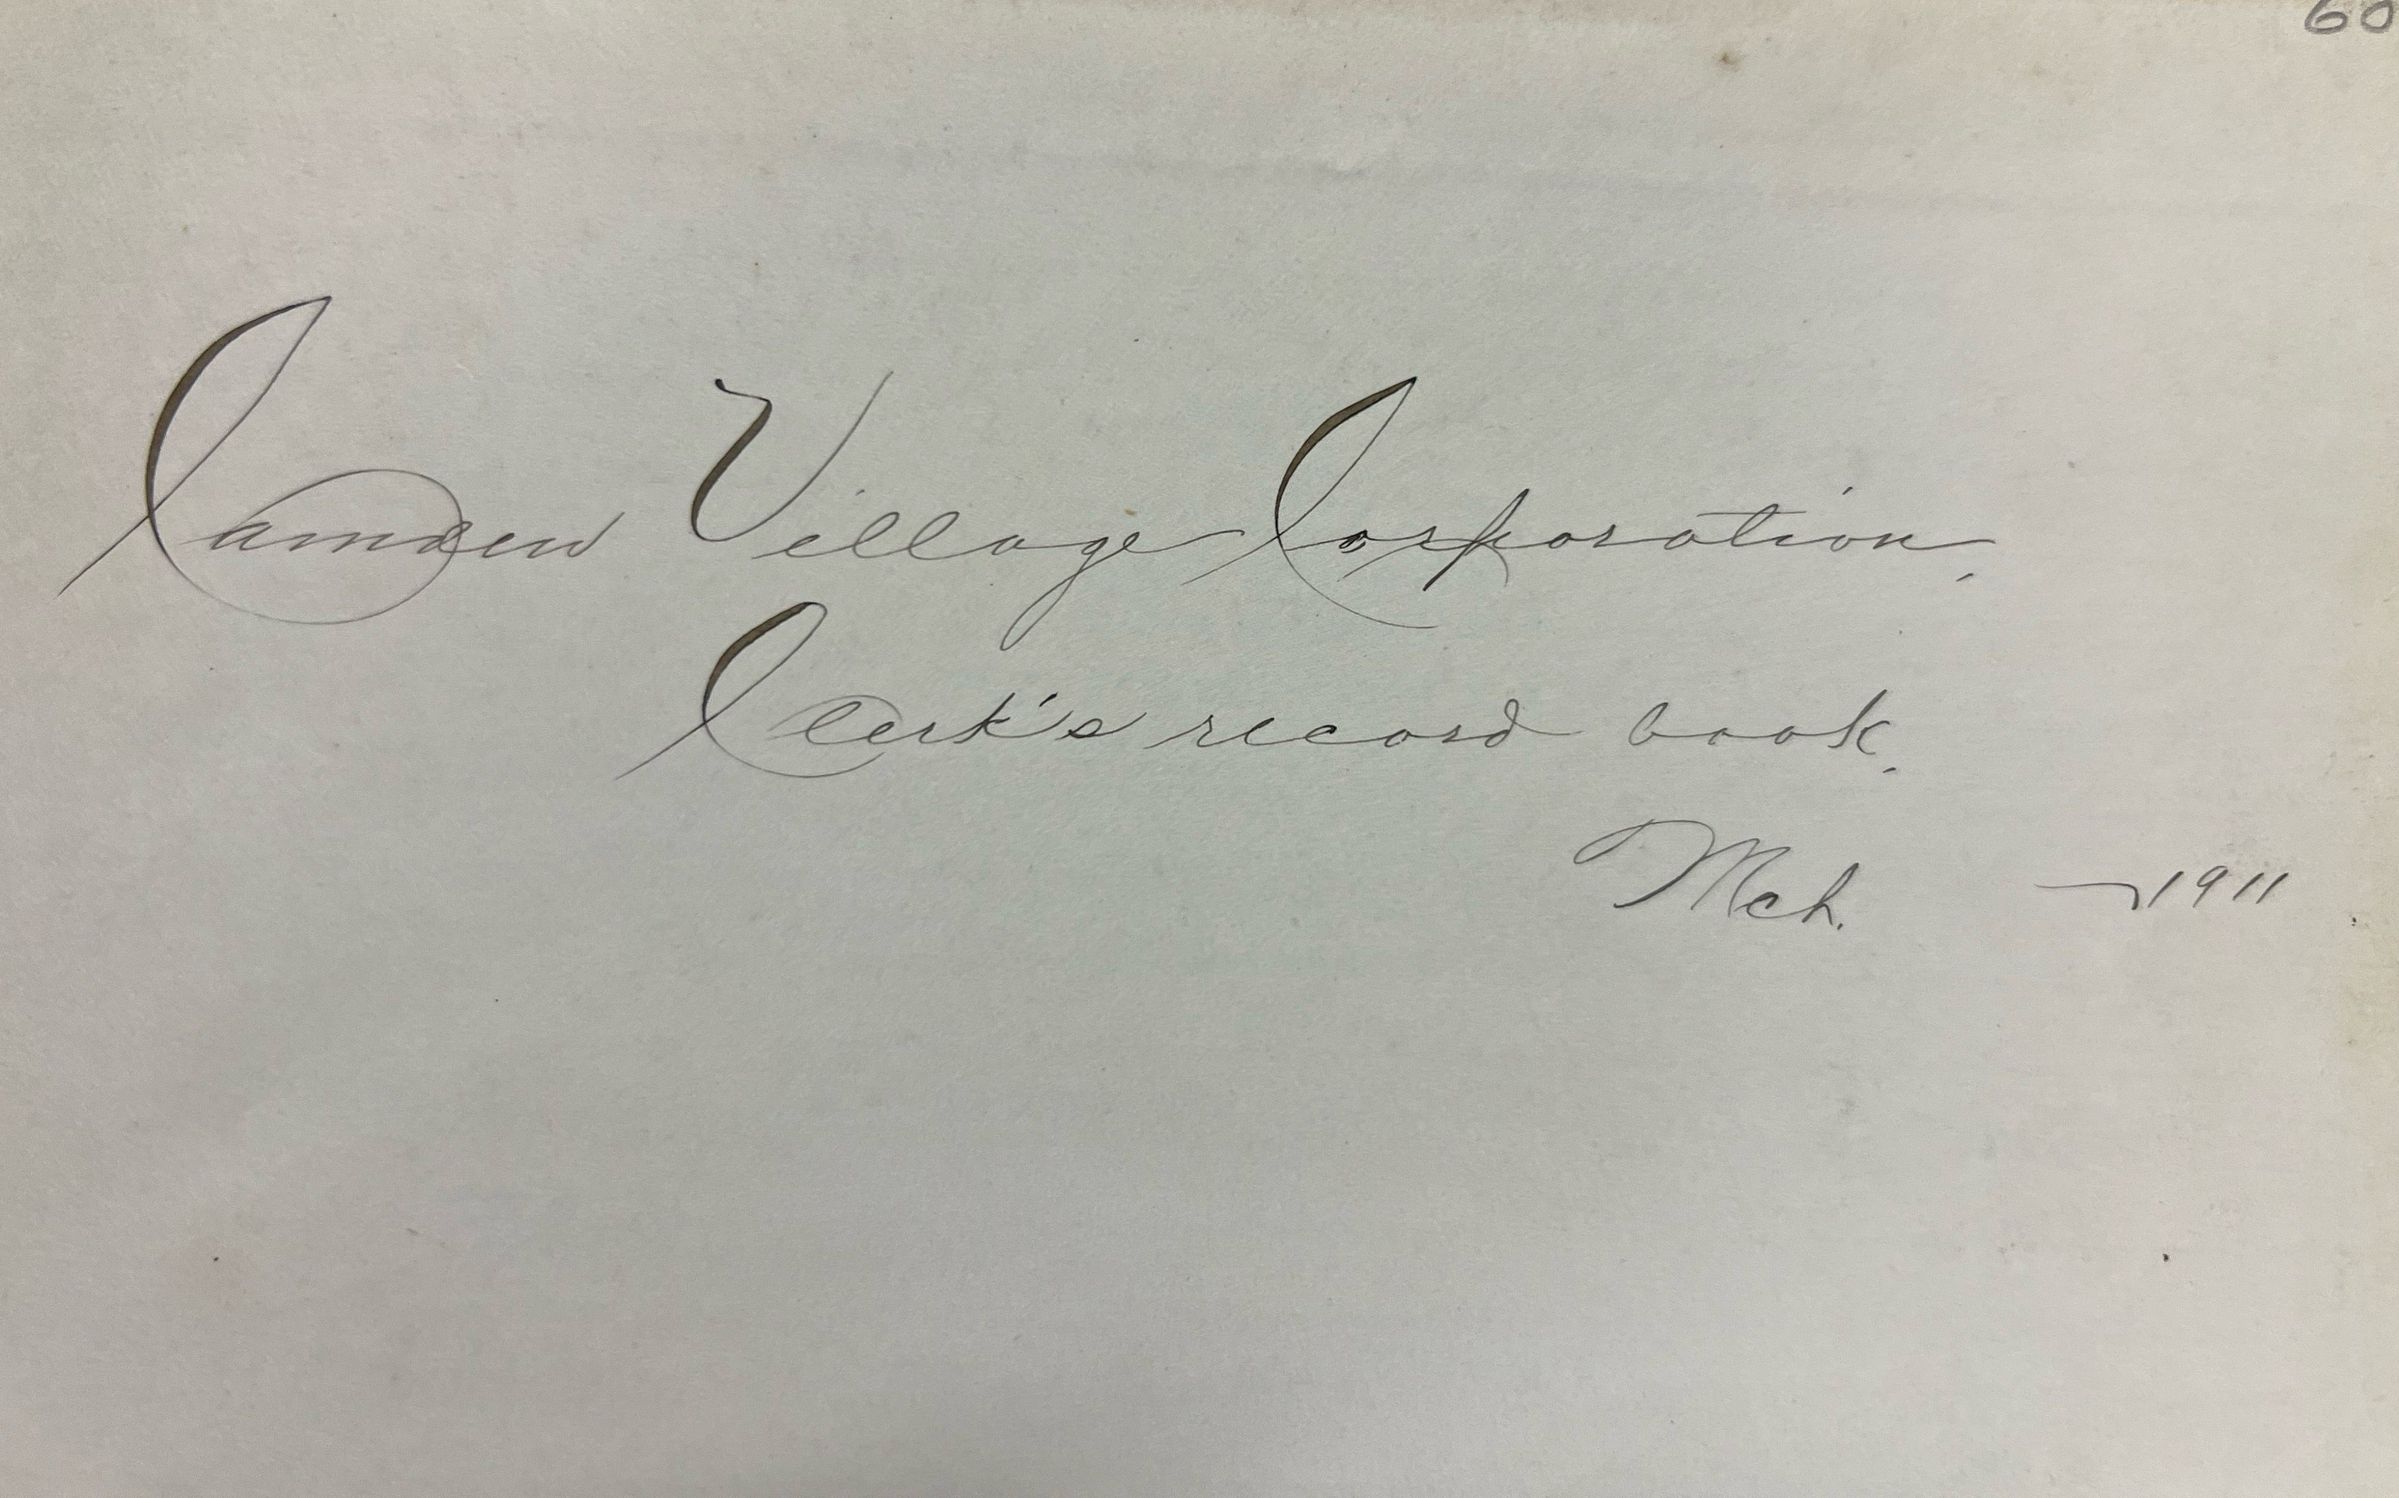 60
Camden Village Corporation.
Clerk's record book.
Mch. 1911